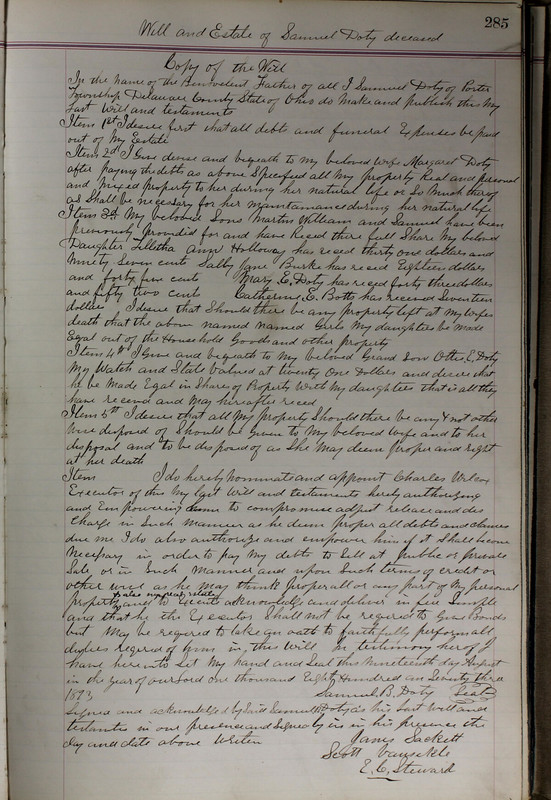 285
Will and Estate of Samuel Doty deceased
Copy of the Will
In the name of the Benevolent Father of all I Samuel Doty of Porter
Township Delaware County State of Ohio do Make and publish this My
Last Will and testaments
Item 1st I desire first that all debts and funeral Expenses be paid
out of My Estate
Item 2d I Give devise and bequeath to my beloved Wife Margaret Doty
after paying the debts as above Specified all My property Real and personal
and Mixed property to her during her natural life or So Much therof
as Shall be necessary for her maintamance during her natural life
Item 3d My beloved Sons Martin William and Samuel have been
previously provided for and have Recd there full Share My beloved
Daughter Ann Holloway has recd thirty one dollars and
Ninety Seven cents Sally Jane Burke has recd Eighteen dollars
and forty five cents Mary E, Doty has recd forty three dollars
and fifty two cents Catherine E. Botts has received Seventeen
dollars I desire that Should there be any property left at My Wifes
death that the above named named Girls My daughters be made
Egal out of the Household Goods and other property
Item 4th I Give and bequeath to My beloved Grand Son E, Doty
My Watch and Valued at twenty One Dollars and desire that
he be Made Egal in Shares of Property With My daughters that is all they
have recevd and May hereafter reced
Item 5th I desire that all My property Should there be any & not other
wise disposed of Should be Given to My beloved Wife and to her
disposal and to be disposed of as She May deem proper and right
at her death
Item I do hereby Nominate and appoint Charles Wilcox
Executor of this My last Will and testaments hereby authorizing
and Empowering to compromise adjust release and dis
Charge in Such Manner as he deem proper all debts and claims
due me I do also authorize and empower him if it Shall become
Necessary in order to pay My debts to Sell at public or private
Sale or in Such Manner and upon Such terms of credit or
other wise as he may think proper all or any part of My personal
property and to Execute acknowledge and deliver in fee Simple
and that he the Executor Shall not be required to Give Bonds
but May be required to take an oath to faithfully perform all
duties required of him in this Will In testimony herof I
have hereunto Set My hand and Seal this Nineteenth day August
in the year of our Lord one thousand Eight Hundred an Seventy three
1873 Samuel B. Doty Seal
Signed and acknowledged by Said Samuel Doty as his Last Will and
testamtes in our presence and Signed by us in his presence the
day and date above Writen
James Sackett
Scott Vansickle
E. C. Steward